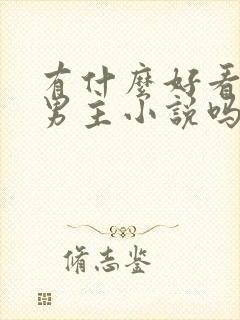 有什麼好看
男主小說嗎
脩志鉴